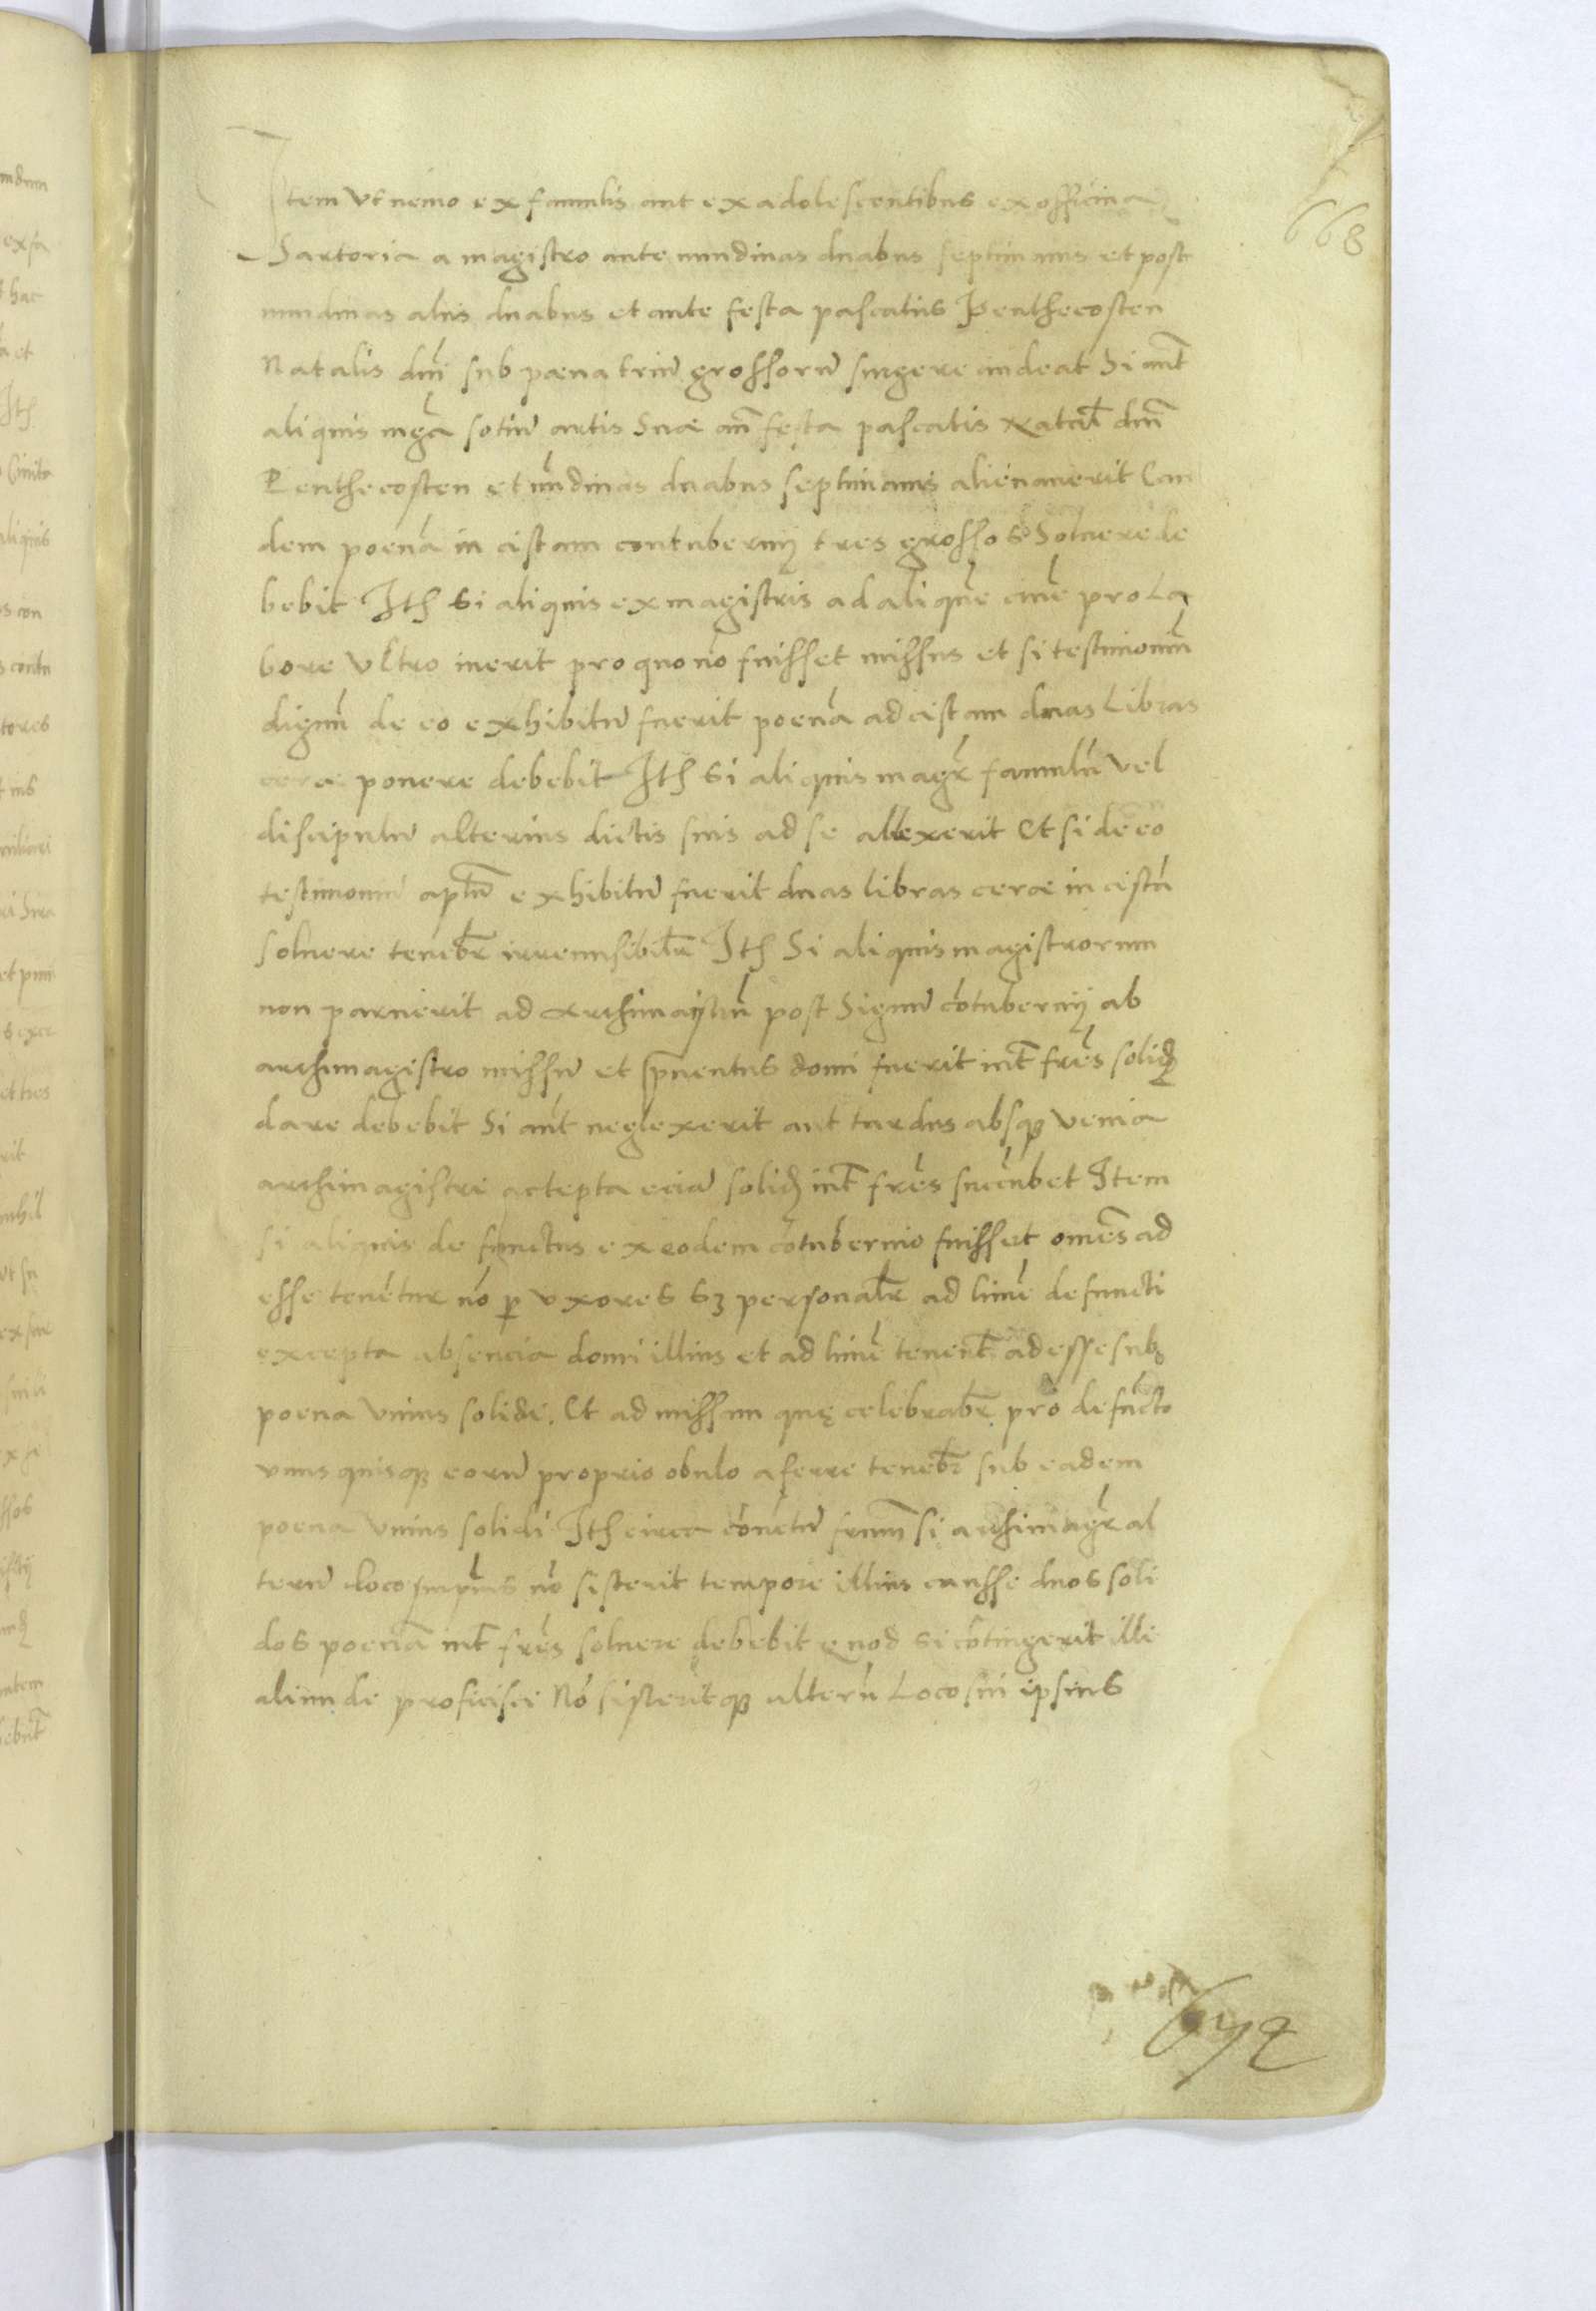 Item Vt nemo ex famulis aut ex adolescentibus ex officina
Sartoria a magistro ante nundinas duabus septimanis et post
nundinas aliis duabus et ante festa pascatus Penthecosten
Natalis dnī sub pæna triū grossorū fugere audeat Si aut̄
aliquis sotiū artis Suæ an̄ festa pascatis Natal̄ dnī
Penthecosten et nūdinas duabus septimanis alienauerit Ean
dem poenā in cistam contubernij tres grossos Soluere de
bebit Itḥ Si aliquis ex magistris ad aliquē ciuē pro La
bore Vltro iuerit pro quo nō fuisset missus et si testimoniū
dignū de eo exhibitū fuerit poenā ad cistam duas Libras
ceræ ponere debebit Itḥ Si aliquis magr̄ famulū vel
discipulū alterius dictis suis ad se allexerit Et si de eo
testimoniū aptū exhibitū fuerit duas libras ceræ in cistā
soluere tenebr̄ Itḥ Si aliquis magistrorum
non paruerit ad post Signū cōtubernij ab
archimagistro missū et domi fuerit int̄ frēs solid
dare debebit Si aūt neglexerit aut tardus absqꝫ venia
archimagistri accepta eciā solid int̄ frēs sucūbet Item
si aliquis defunctus ex eodem cōtubernio fuisset omēs ad
esse tenētur nō ꝑ vxores sꝫ personalr̄ ad funē defuncti
excepta absencia domi illius et ad funē tenent̄ adesse sub
poena Vnius solidi. Et ad missam quę celebrabr̄ pro defūcto
vnus quisqꝫ eorū proprio obulo aferre tenebr̄ sub eadem
poena Vnius solidi Itḥ circa cōuetū frūm si archimagr̄ al
terū loco nō sisterit tempore illius causse duos soli
dos poenā int̄ frēs soluere debebit Quod si cōtingerit illi
aliunde proficisci Nō sisteritqꝫ alterū Loco sui ipsius
668